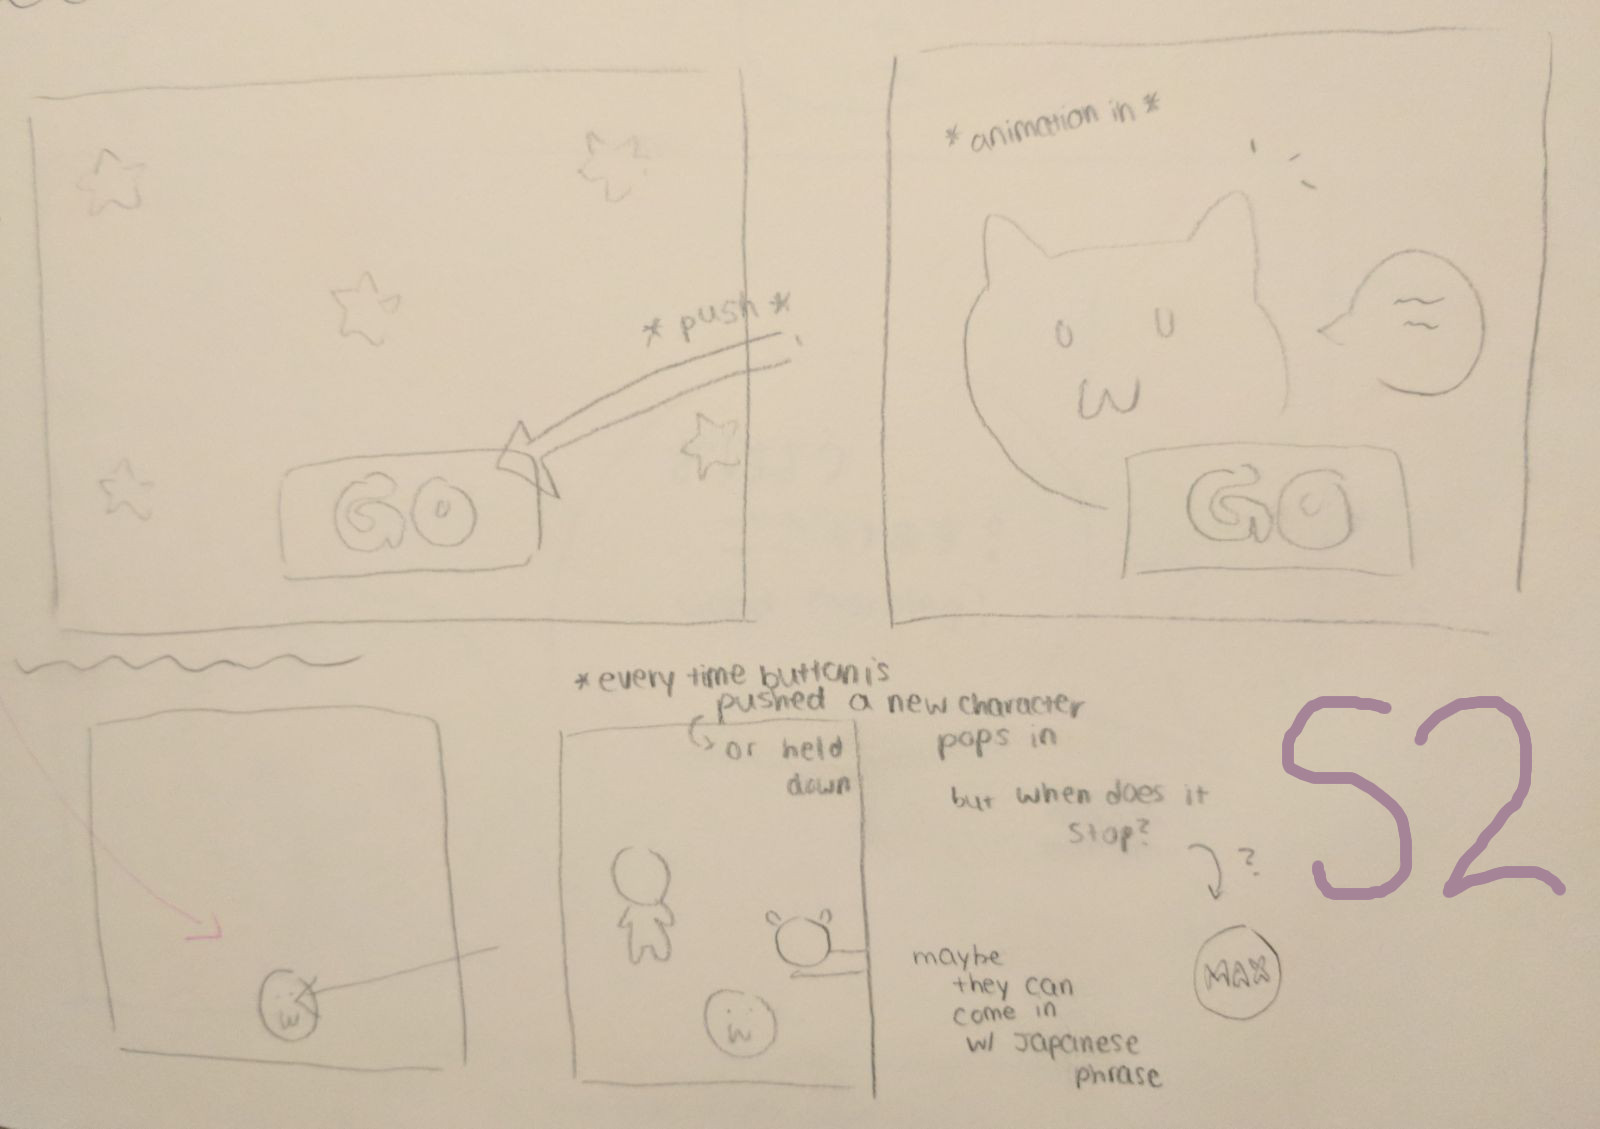 * push *
GO
* animation in *
GO
* every time button is
pushed a new character
pops in
or held
down
but when does it
stop?
?
MAX
maybe
they can
come in
w/ Japanese
phrase
52